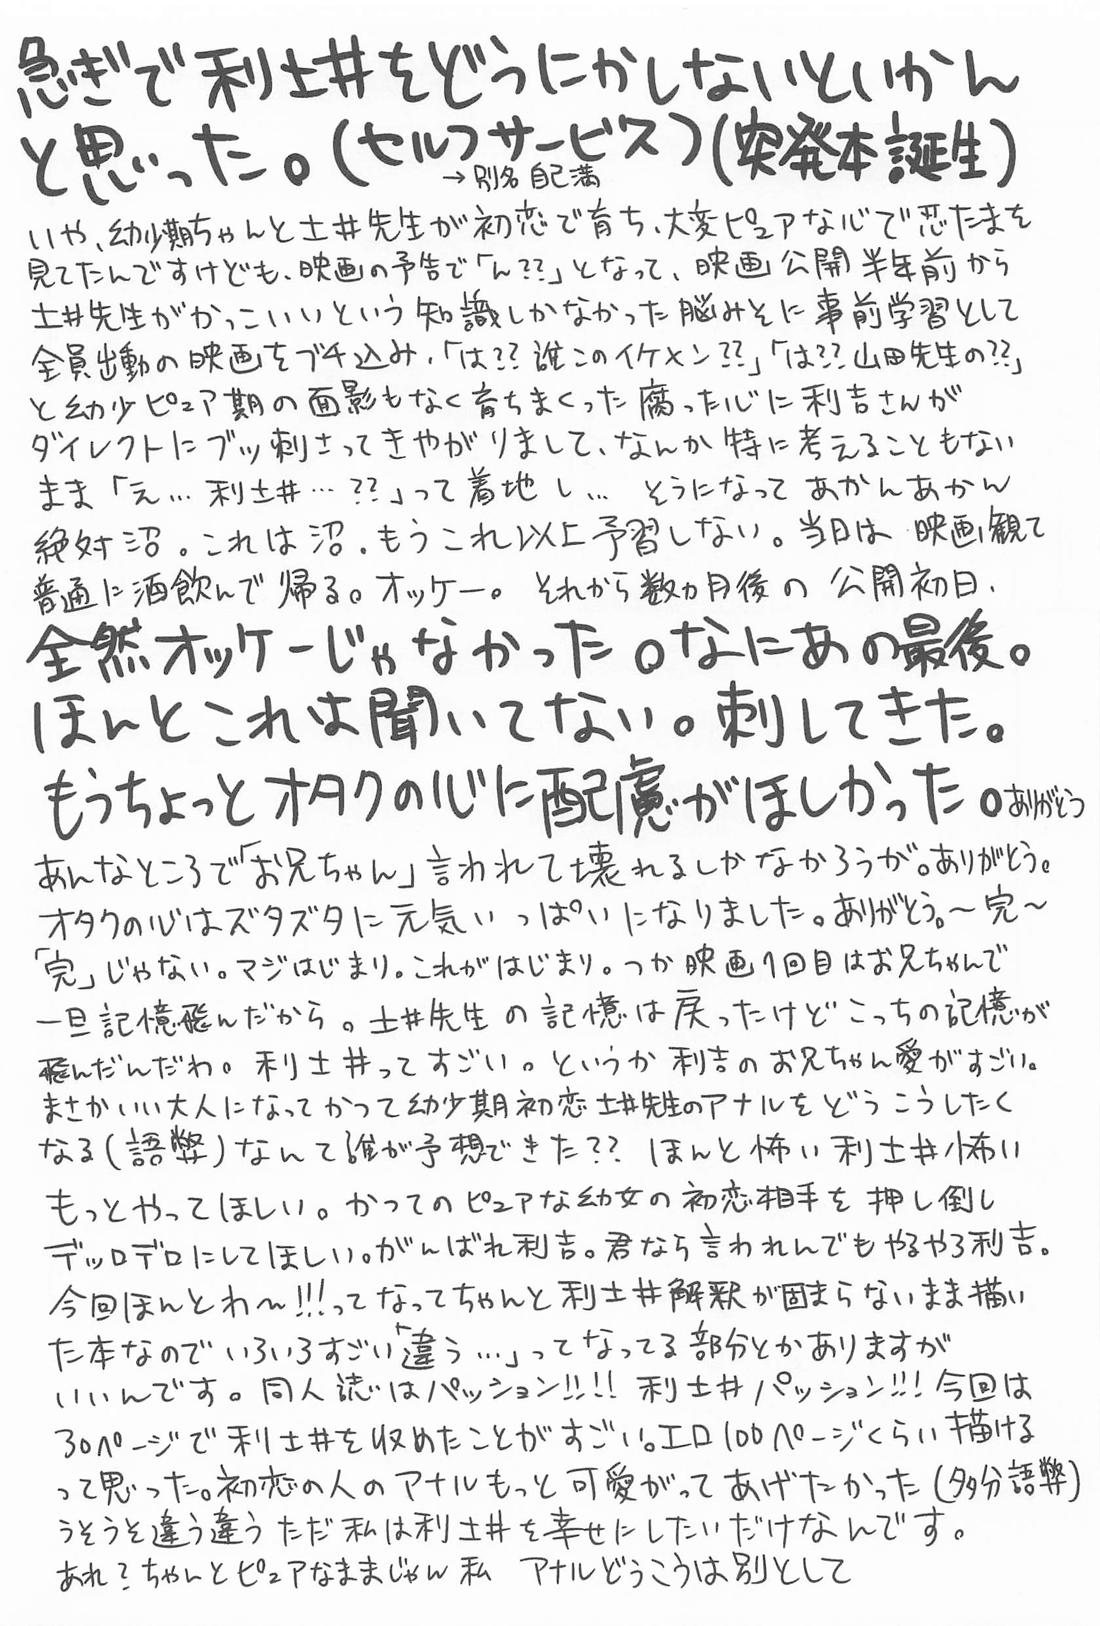 急ぎで利土井をどうにかしないといかん
と思った。(セルフサービス)(突発本誕生)
→別名 自己満
いや、幼少期ちゃんと土井先生が初恋で育ち、大変ピュアな心で忍たまを
見てたんですけども、映画の予告で「ん??」となって、映画公開半年前から
土井先生がかっこいいという知識しかなかった脳みそに事前学習として
全員出動の映画をブチ込み、「は??誰このイケメン??」「は??山田先生の??」
と幼少ピュア期の面影もなく育ちまくった腐った心に利吉さんが
ダイレクトにブッ刺さってきやがりまして、なんか特に考えることもない
まま「え…利土井…??」って着地し… そうになってあかんあかん
絶対沼。これは沼。もうこれ以上予習しない。当日は映画観て
普通に酒飲んで帰る。オッケー。それから数ヵ月後の公開初日、
全然オッケーじゃなかった。なにあの最後。
ほんとこれは聞いてない。刺してきた。
もうちょっとオタクの心に配慮がほしかった。ありがとう
あんなところで「お兄ちゃん」言われて壊れるしかなかろうが。ありがとう。
オタクの心はズタズタに元気いっぱいになりました。ありがとう。〜完〜
「完」じゃない。マジはじまり。これがはじまり。つか映画1回目はお兄ちゃんで
一旦記憶飛んだから。土井先生の記憶は戻ったけどこっちの記憶が
飛んだんだわ。利土井ってすごい。というか利吉のお兄ちゃん愛がすごい。
まさかいい大人になってかつて幼少期初恋土井先生のアナルをどうこうしたく
なる(語弊)なんて誰が予想できた?? ほんと怖い利土井怖い
もっとやってほしい。かつてのピュアな幼女の初恋相手を押し倒し
デッロデロにしてほしい。がんばれ利吉。君なら言われんでもやるやろ利吉。
今回ほんとわ〜!!!ってなってちゃんと利土井解釈が固まらないまま描い
た本なのでいろいろすごい「違う…」ってなってる部分とかありますが
いいんです。同人誌はパッション!!!! 利土井パッション!!! 今回は
30ページで利土井を収めたことがすごい。エロ100ページくらい描ける
って思った。初恋の人のアナルもっと可愛がってあげたかった(多分語弊)
うそうそ違う違うただ私は利土井を幸せにしたいだけなんです。
あれ?ちゃんとピュアなままじゃん私 アナルどうこうは別として